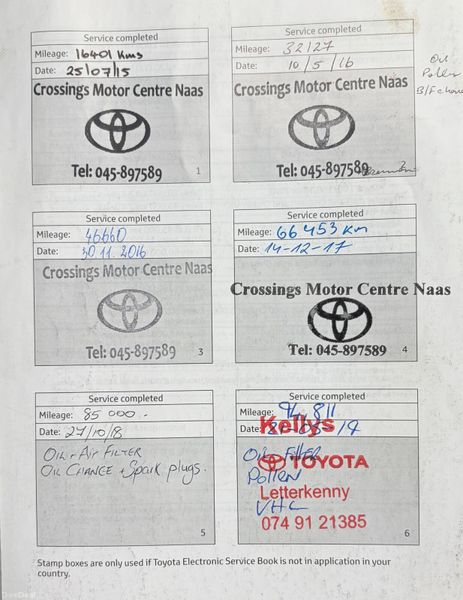 Service completed
Mileage: 16401 Kms
Date: 25/07/15
Crossings Motor Centre Naas
Tel: 045-897589
1
Service completed
Mileage: 32127
Date: 10/5/16
Crossings Motor Centre Naas
Tel: 045-897589
2
Oil
Pollen
Service completed
Mileage: 46660
Date: 30.11.2016
Crossings Motor Centre Naas
Tel: 045-897589
3
Service completed
Mileage: 66453 Km
Date: 14-12-17
Crossings Motor Centre Naas
Tel: 045-897589
4
Service completed
Mileage: 85 000 -
Date: 27/10/18
OIL + AIR FILTER
OIL CHANGE + Spark plugs.
5
Service completed
Mileage: 94,811
Date:
Kellys
OIL FILTER
TOYOTA
POLLEN
Letterkenny
VHC
074 91 21385
6
Stamp boxes are only used if Toyota Electronic Service Book is not in application in your
country.